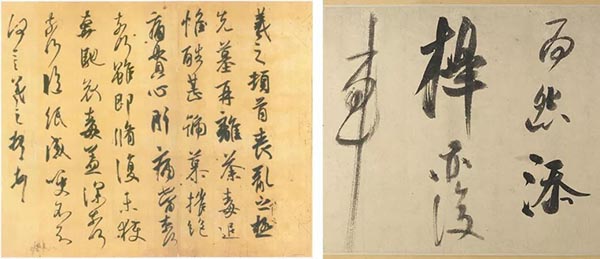 羲之頓首喪亂之極
先墓再離荼毒追
惟酷甚號慕摧絕
痛貫心肝痛當奈何
奈何雖即脩復未獲
奔馳哀毒益深奈何
奈何臨紙感哽不知
何言羲之頓首頓首
而怨添
槹亦復
車